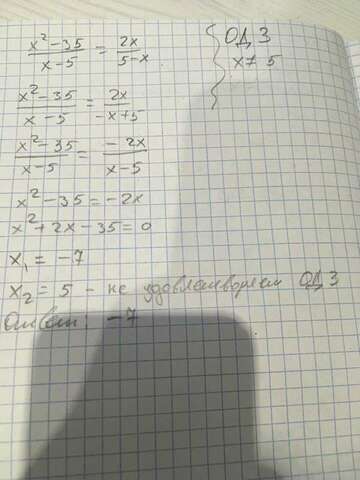 (x²-35)/(x-5) = 2x/(5-x)
ОДЗ
x ≠ 5
(x²-35)/(x-5) = 2x/(-x+5)
(x²-35)/(x-5) = -2x/(x-5)
x²-35=-2x
x²+2x-35=0
x₁ = -7
x₂ = 5 - не удовлетворяет ОДЗ
Ответ: -7